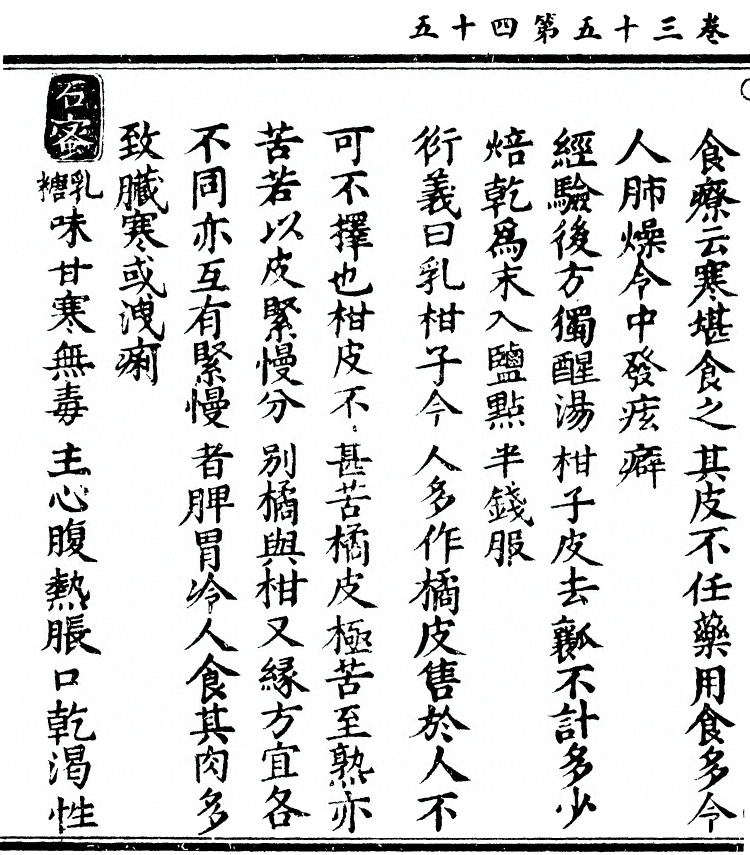 卷三十五第四十五
食療云寒堪食之其皮不任藥用食多令
人肺燥令中發痃癖
經驗後方獨醒湯柑子皮去瓤不計多少
焙乾爲末入鹽點半錢服
衍義曰乳柑子今人多作橘皮售於人不
可不擇也柑皮不甚苦橘皮極苦至熟亦
苦若以皮緊慢分別橘與柑又緣方宜各
不同亦互有緊慢者脾胃冷人食其肉多
致臟寒或洩痢
石蜜乳糖味甘寒無毒主心腹熱脹口乾渴性